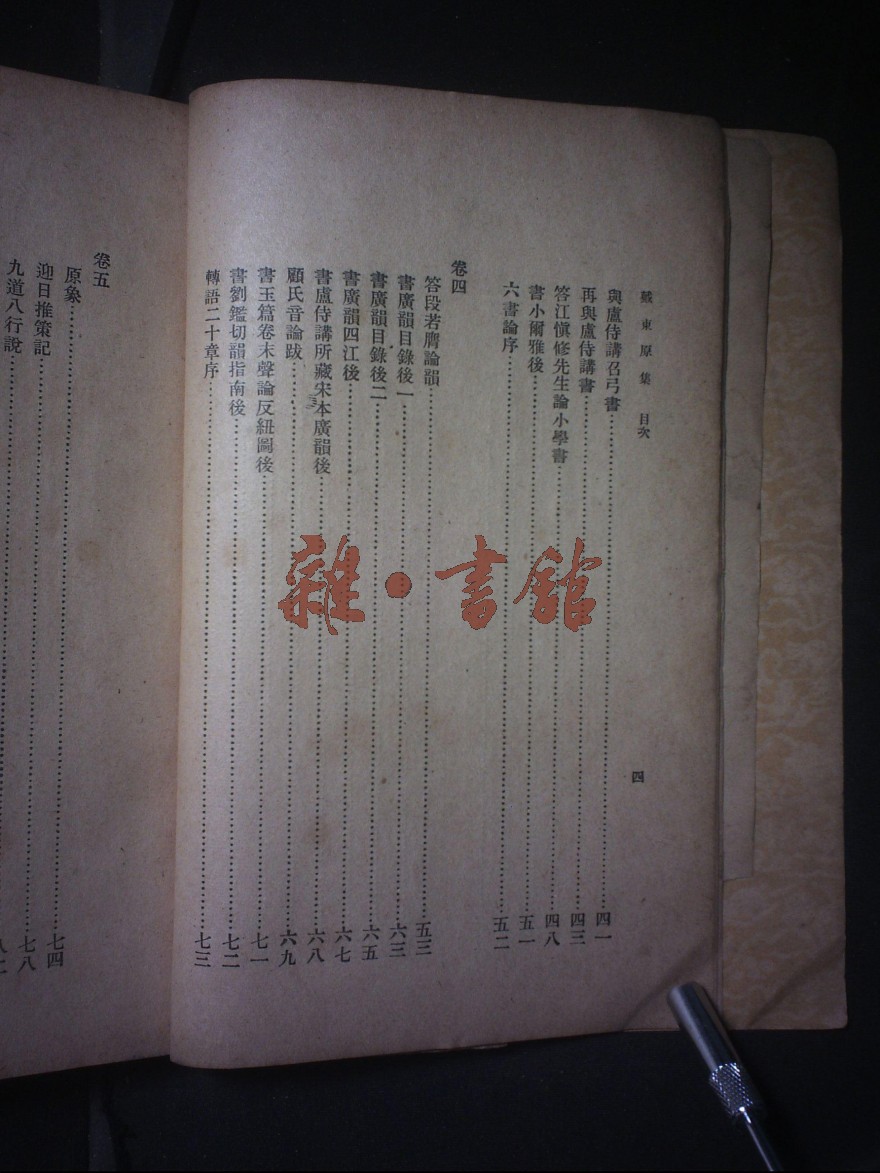 戴東原集 目次 四
與盧侍講召弓書 四一
再與盧侍講書 四三
答江愼修先生論小學書 四八
書小爾雅後 五一
六書論序 五二
卷四
答段若膺論韻 五三
書廣韻目錄後一 六三
書廣韻目錄後二 六五
書廣韻四江後 六七
書盧侍講所藏宋本廣韻後 六八
顧氏音論跋 六九
書玉篇卷末聲論反紐圖後 七一
書劉鑑切韻指南後 七二
轉語二十章序 七三
卷五
原象 七四
迎日推策記 七八
九道八行說
雜·書館